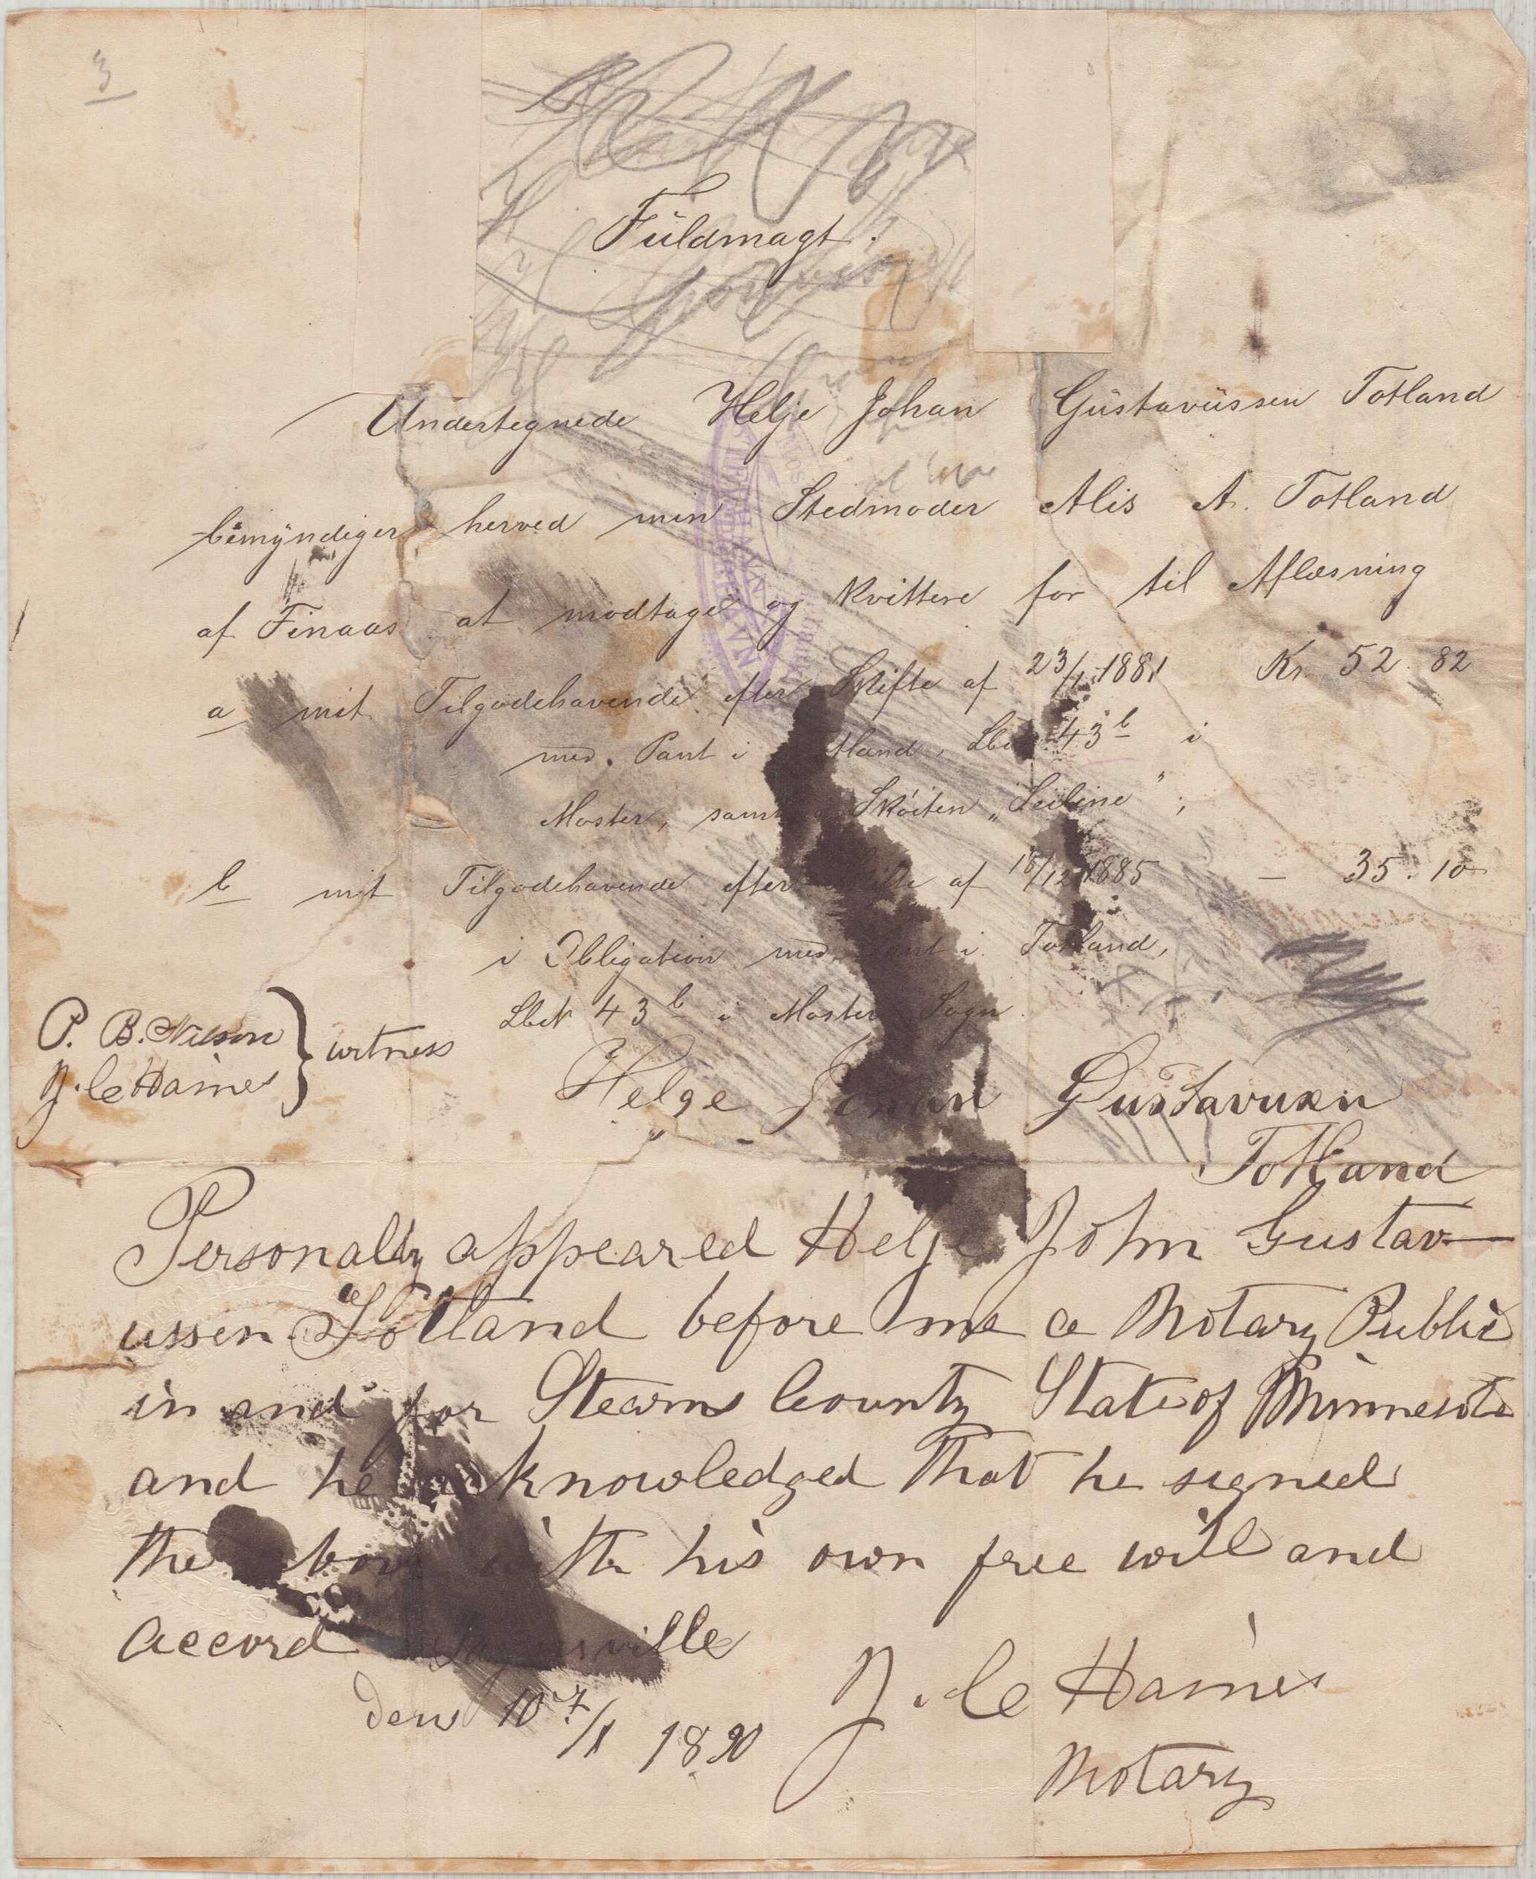 3
Füldmagt.
Undertegnede Helje Johan Güstavüssen Totland
bemÿndiger herved min Stedmoder Alis A. Totland
af Finaas at modtage og kvittere for til Aflæsning
a mit Tilgodehavende efter Skifte af 23/1 1881 Kr. 52.82
med Pant i Lbet 43 b i
Moster, samt Skøiten „ ";
b mit Tilgodehavende efter af 18/12 1885 — 35.10
i Obligation med Pant i Totland,
Lbet 43 b i Moster Sogn.
P. B. Nilson
J. C. Haines } witness
Helge Johan Gustavusen
Totland
Personally appeared Helje John Gustav-
ussen Totland before me a Notary Public
in and for Stearns County State of Minnesota
and he acknowledged That he signed
the above with his own free will and
accord
Den 10 7/1 1890
J. C. Haines
Notary